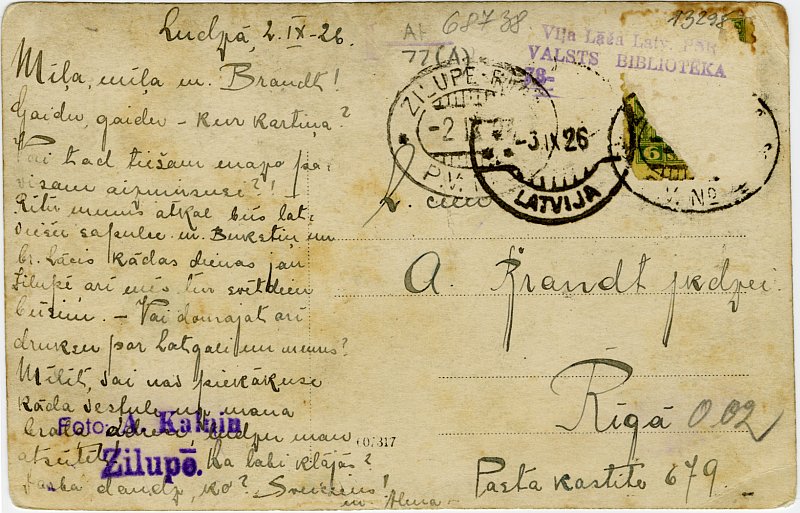 Ludzā, 2. IX-26.
Mīļa, mīļa m. Brandt!
Gaidu, gaidu - kur kartiņa?
Vai tad tiešām mani pa-
visam aizmirsusi?!
Rītu mums atkal būs lat-
viešu sapulce. m. Burkstiņ un
br. Lācis kādas dienas jau
Zilupē arī mēs tur svētdien
būsim. - Vai domājat arī
drusku par Latgali un mums?
Mīlīt, vai nav pienākusi
kāda vēstule no mana
brāļa
atsūtīt. Ka labi klājās?
Darba daudz, ko? Sveiciens!
m. Alma -
Foto: A. Kalnin
Zilupē.
607817
AI 68738
77(A)
13298
Viļa Lāča Latv. PSR
VALSTS BIBLIOTEKA
78-
ZILUPE
-2 IX
P.V. N
-3.IX 26
LATVIJA
V. Nº
6
L. cien.
A. Brandt jkdzei
Rīgā
0.02
Pasta kastītē 679.